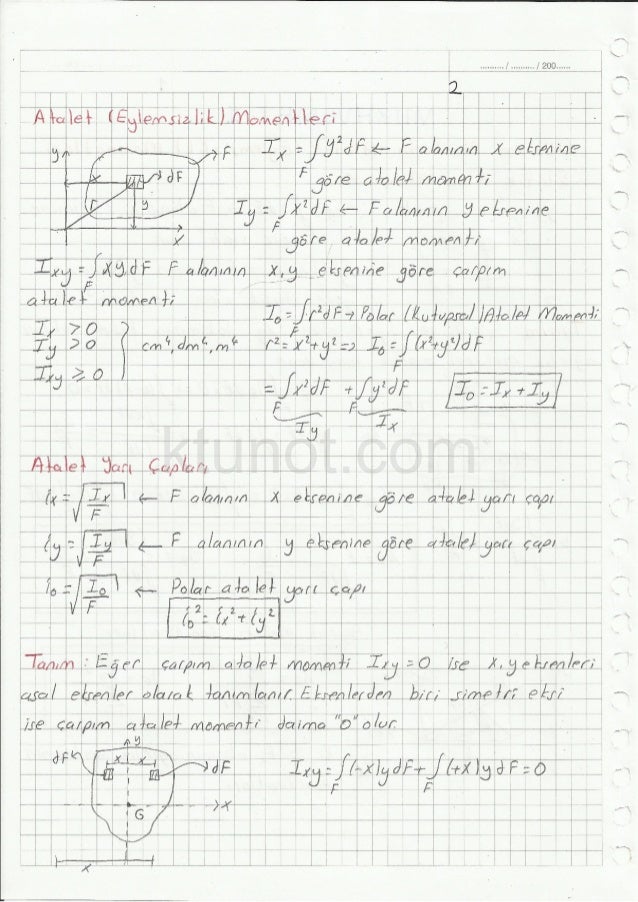 ........../........../ 200......
2
Atalet (Eylemsizlik) Momentleri
y F Ix = ∫y²dF ← F alanının x eksenine
F
x dF göre atalet momenti
r y Iy = ∫x²dF ← F alanının y eksenine
F
x göre atalet momenti
Ixy = ∫xydF F alanının x,y eksenine göre çarpım
F
atalet momenti
I₀ = ∫r²dF → Polar (Kutupsal) Atalet Momenti
F
Ix > 0
Iy > 0 } cm⁴, dm⁴, m⁴ r² = x²+y² => I₀ = ∫(x²+y²)dF
F
Ixy ⩾ 0
= ∫x²dF + ∫y²dF I₀ = Ix + Iy
F F
Iy Ix
ktunot.com
Atalet Yarı Çapları
ix = √Ix/F ← F alanının x eksenine göre atalet yarı çapı
iy = √Iy/F ← F alanının y eksenine göre atalet yarı çapı
i₀ = √I₀/F ← Polar atalet yarı çapı
i₀² = ix² + iy²
Tanım : Eğer çarpım atalet momenti Ixy = 0 ise x,y eksenleri
asal eksenler olarak tanımlanır. Eksenlerden biri simetri eksi
ise çarpım atalet momenti daima "0" olur.
y
dF x x dF Ixy = ∫(-x)ydF + ∫(+x)ydF = 0
F F
G x
x